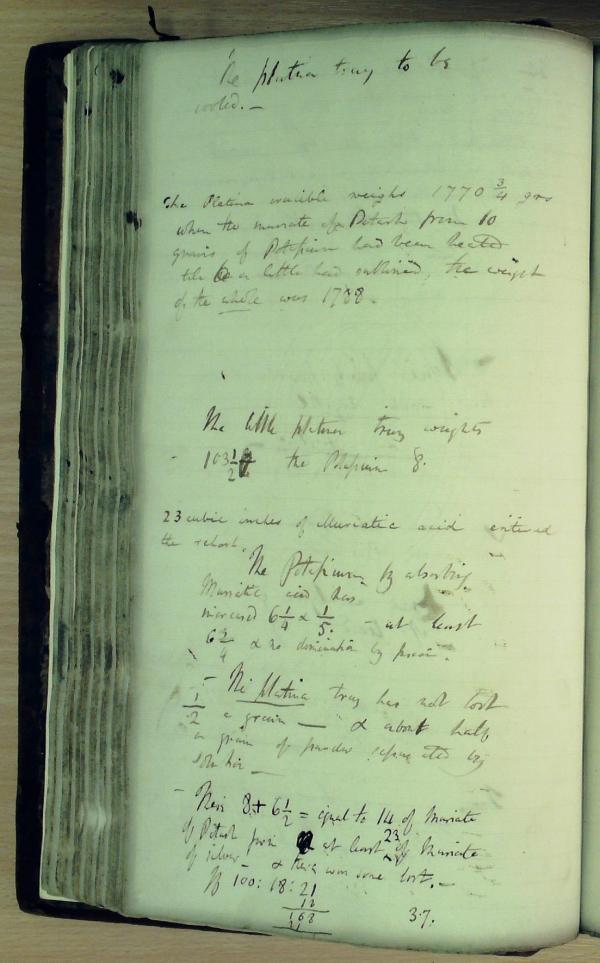 The platina tray to be
cooled. —
The Platina crucible weighs 1770 3/4 grs
when the muriate of Potash from 10
grains of Potassium had been heated
till a little had sublimed, the weight
of the whole was 1788.
The little platina tray weighs
103 1/2 the Potassium 8.
23 cubic inches of Muriatic acid entered
the retort.
The Potassium by absorbing
Muriatic acid has
increased 6 1/4 & 1/5. – at least
6 2/4 & no diminution by
– The platina tray has not lost
1/2 a grain — & about half
a grain of powder separated by
—
– Now 8 + 6 1/2 = equal to 14 of Muriate
of Potash from at least 23 of Muriate
of silver – & there was some lost. –
If 100 : 18 : 21
18
168
21
3.7.